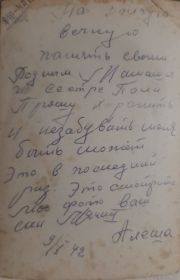 На долгую
вечную
память своим
Родным Мамаша
и сестре Поли
Прошу хранить
и незабувать меня
бить сможет
Это в последний
раз. Это смотрите
фото ваш
сын
Алеша
9/I 42